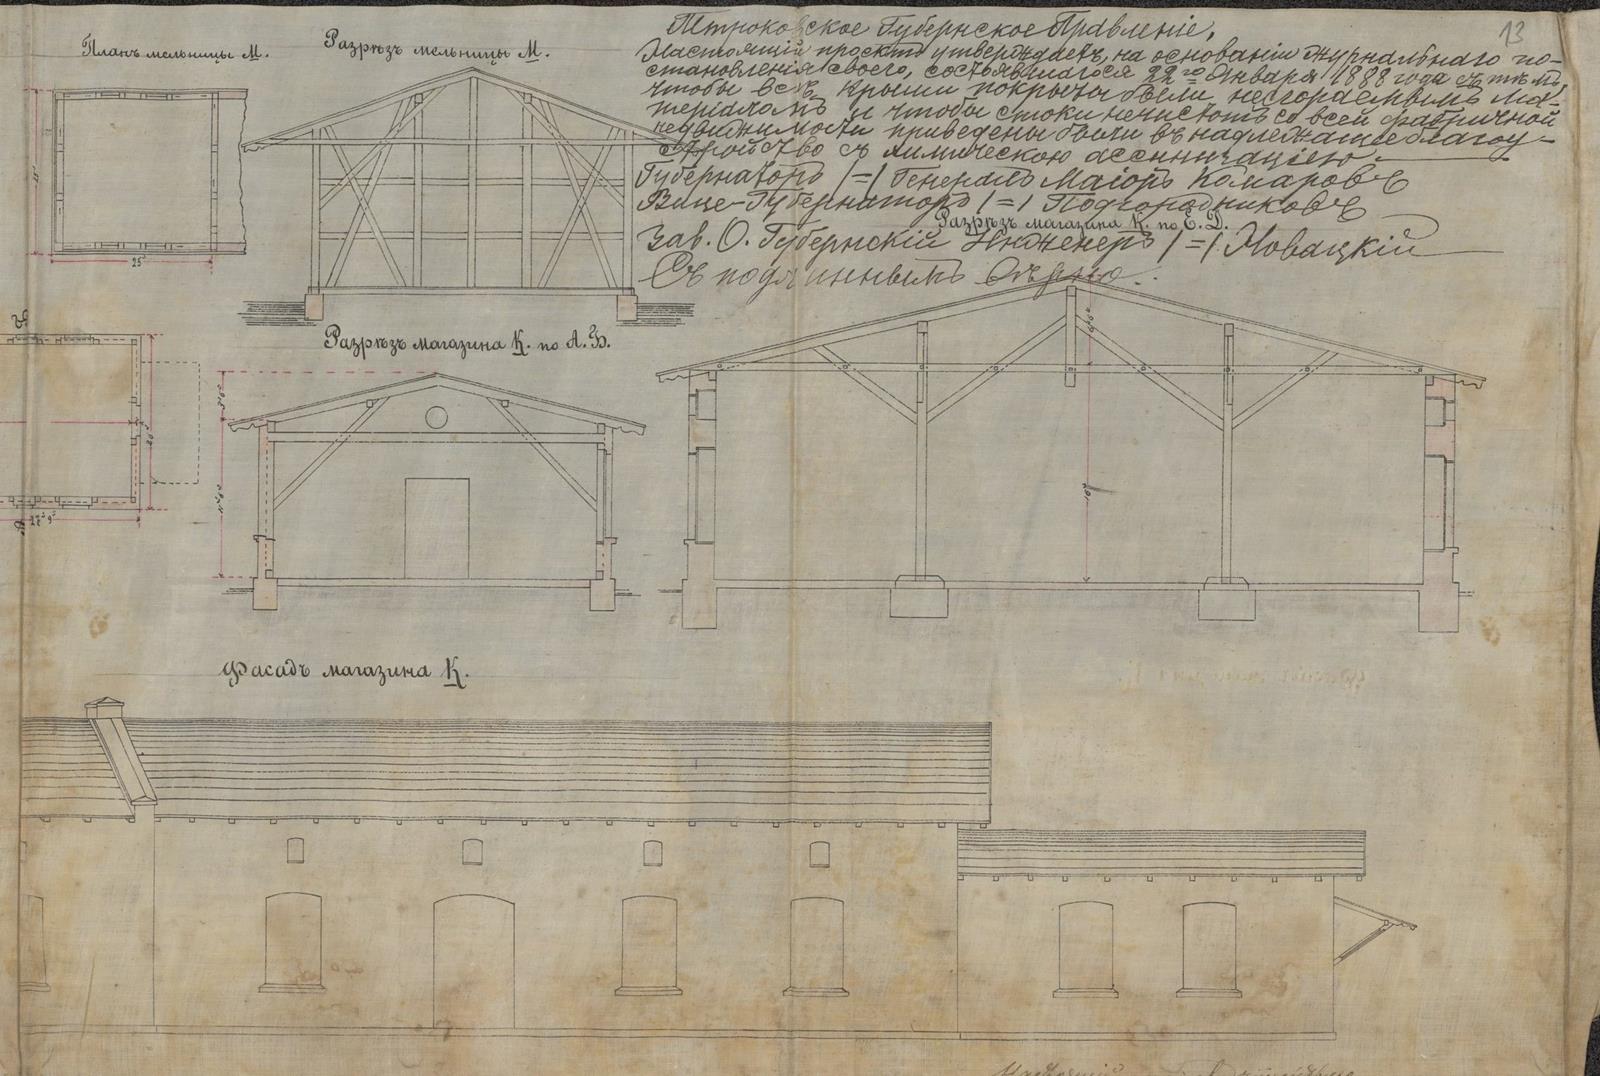 13
Петроковское Губернское Правленіе,
Настоящій проектъ утверждаетъ, на основаніи журнальнаго по-
становленія своего, состоявшагося 22го Января 1888 года съ тѣмъ,
чтобы всѣ крыши покрыты были несгораемымъ ма-
теріаломъ и чтобы стоки нечистотъ со всей фабричной
недвижимости приведены были въ надлежащее благоу-
стройство съ химическою ассенизаціею.
Губернаторъ /=/ Генералъ Маіоръ Комаровъ
Вице-Губернаторъ /=/ Подгородниковъ
Зав. О. Губернскій Инженеръ /=/ Новацкій
Съ подлиннымъ вѣрно:
Планъ мельницы М.
Разрѣзъ мельницы М.
25'
Разрѣзъ магазина К. по Е. Д.
Разрѣзъ магазина К. по А. Б.
Фасадъ магазина К.